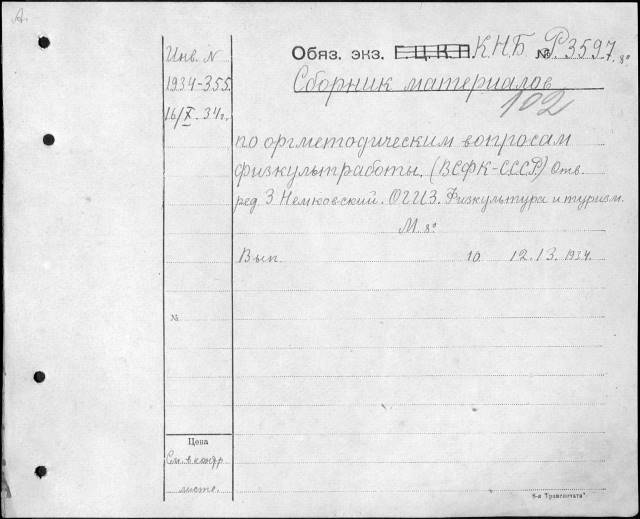 А.
Инв. N
1934-355
16/X. 34г.
Обяз. экз. Г.Ц.К.П. К.Н.Б № Р3597. 8°
Сборник материалов
102
по оргметодическим вопросам
физкультработы. (ВСФК-СССР) Отв.
ред. З Немковский. ОГИЗ. Физкультура и туризм.
М. 8°
Вып. 10. 12. 13. 1934.
№
Цена
См. в контр
листе.
6-я "Транспечати"